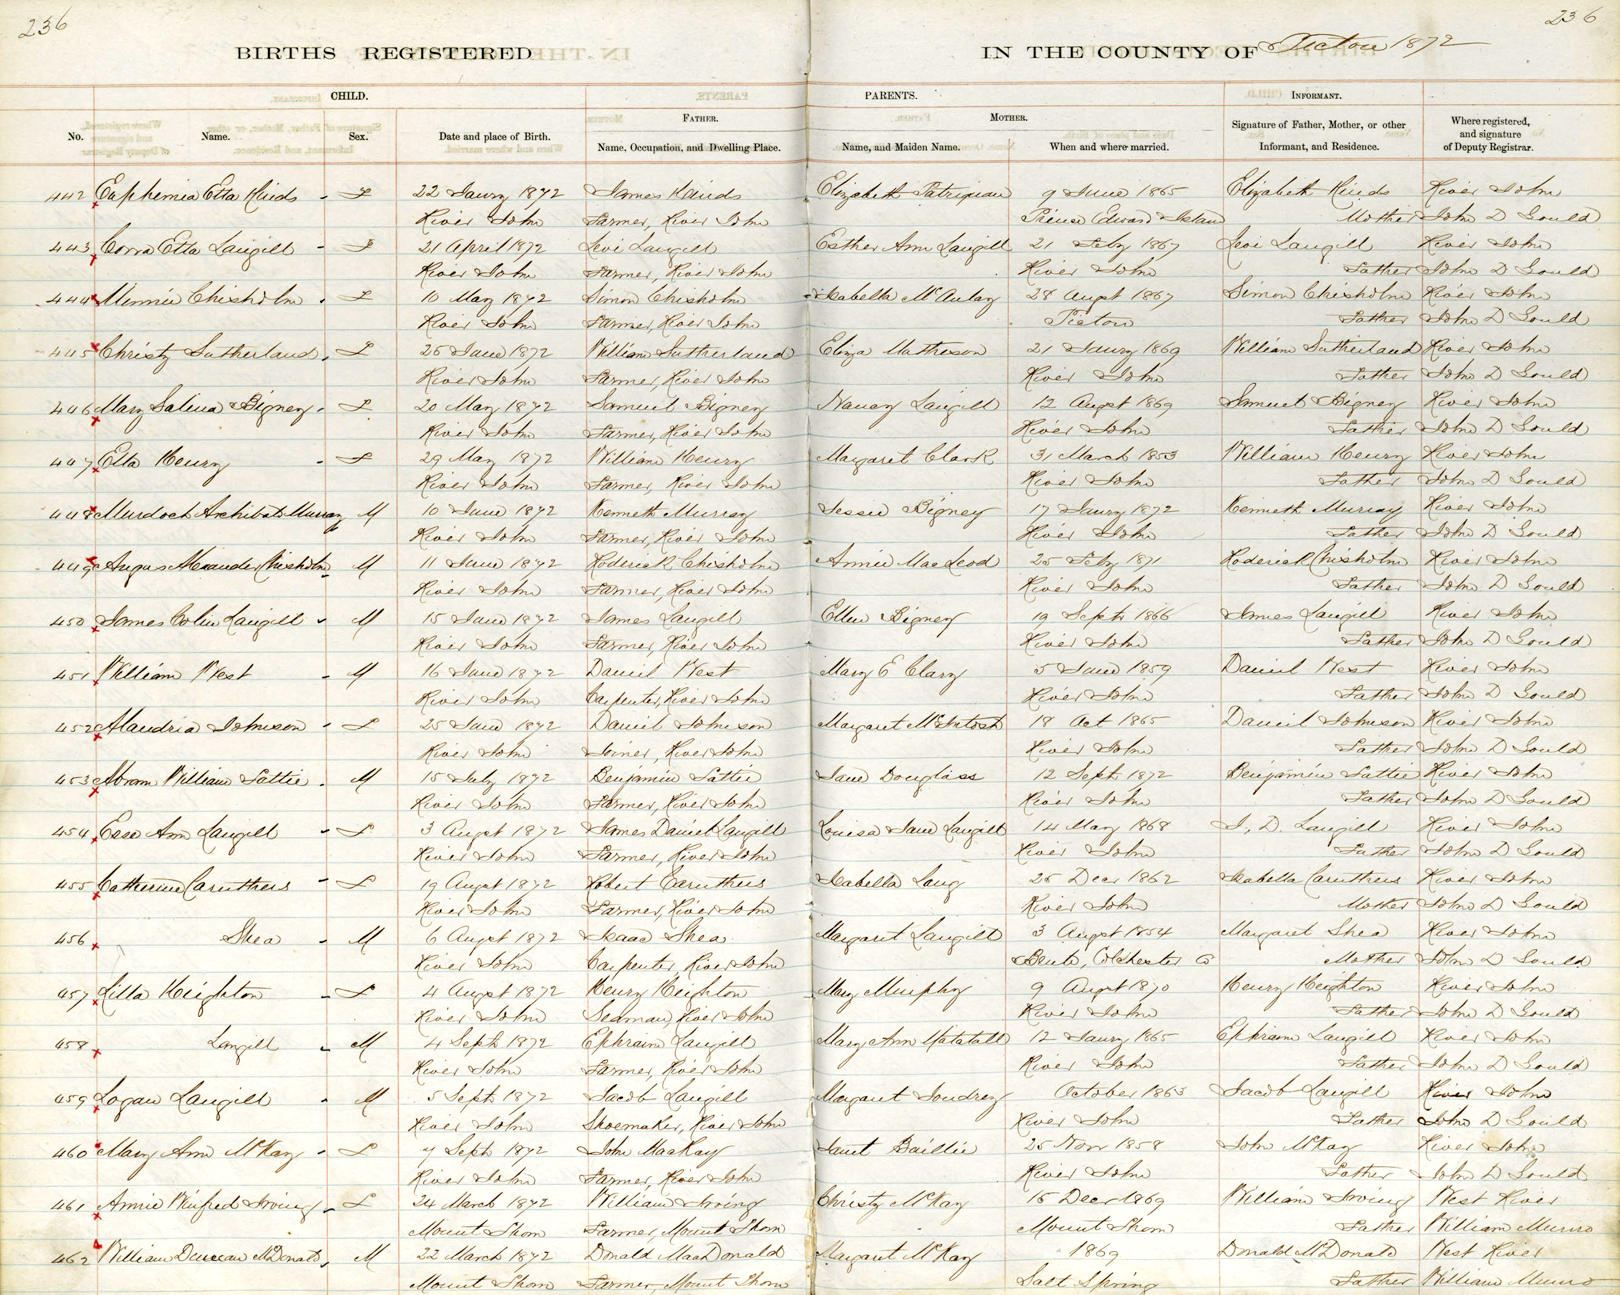 236
236
BIRTHS REGISTERED IN THE COUNTY OF Pictou 1872
CHILD. PARENTS. INFORMANT.
FATHER. MOTHER.
No. Name. Sex. Date and place of Birth. Name, Occupation, and Dwelling Place. Name, and Maiden Name. When and where married. Signature of Father, Mother, or other Informant, and Residence. Where registered, and signature of Deputy Registrar.
442 Euphemia Etta Hinds - F 22 Jany 1872 James Hinds Elizabeth Patriquin 9 June 1865 Elizabeth Hinds River John
River John Farmer, River John Prince Edward Island Mother John D Gould
443 Corra Etta Langill - F 21 April 1872 Levi Langill Esther Ann Langill 21 Feby 1867 Levi Langill River John
River John Farmer, River John River John Father John D Gould
444 Minnie Chisholm - F 10 May 1872 Simon Chisholm Isabella McAulay 28 Augst 1867 Simon Chisholm River John
River John Farmer, River John Pictou Father John D Gould
445 Christy Sutherland - F 26 June 1872 William Sutherland Eliza Matheson 21 Jany 1869 William Sutherland River John
River John Farmer, River John River John Father John D Gould
446 Mary Salina Bigney - F 20 May 1872 Samuel Bigney Nancy Langill 12 Augst 1869 Samuel Bigney River John
River John Farmer, River John River John Father John D Gould
447 Etta Henry - F 29 May 1872 William Henry Margaret Clark 31 March 1853 William Henry River John
River John Farmer, River John River John Father John D Gould
448 Murdoch Archibald Murray M 10 June 1872 Kenneth Murray Jessie Bigney 17 Jany 1872 Kenneth Murray River John
River John Farmer, River John River John Father John D Gould
449 Angus Alexander Chisholm M 11 June 1872 Roderick Chisholm Annie MacLeod 25 Feby 1871 Roderick Chisholm River John
River John Farmer, River John River John Father John D Gould
450 James Colin Langill - M 15 June 1872 James Langill Ellen Bigney 19 Sept 1866 James Langill River John
River John Farmer, River John River John Father John D Gould
451 William West - M 16 June 1872 Daniel West Mary E Clary 5 June 1859 Daniel West River John
River John Carpenter, River John River John Father John D Gould
452 Johnson - F 25 June 1872 Daniel Johnson Margaret McIntosh 18 Oct 1865 Daniel Johnson River John
River John Joiner, River John River John Father John D Gould
453 Abram William Tattrie - M 15 July 1872 Benjamin Tattrie Jane Douglass 12 Sept 1872 Benjamin Tattrie River John
River John Farmer, River John River John Father John D Gould
454 Ann Langill - F 3 Augst 1872 James Daniel Langill Louisa Jane Langill 14 May 1868 J, D. Langill River John
River John Farmer, River John River John Father John D Gould
455 Catherine Caruthers - F 19 Augst 1872 Robert Caruthers Isabella Long 26 Decr 1862 Isabella Caruthers River John
River John Farmer, River John River John Mother John D Gould
456 Shea - M 6 Augst 1872 Isaac Shea Margaret Langill 3 Augst 1854 Margaret Shea River John
River John Carpenter, River John Colchester Co Mother John D Gould
457 Lilla Heighton - F 4 Augst 1872 Henry Heighton Mary Murphy 9 Augst 1870 Henry Heighton River John
River John Seaman, River John River John Father John D Gould
458 Langill - M 4 Sept 1872 Ephraim Langill Mary Ann Matatall 12 Jany 1865 Ephraim Langill River John
River John Farmer, River John River John Father John D Gould
459 Logan Langill - M 5 Sept 1872 Jacob Langill Margaret October 1863 Jacob Langill River John
River John Shoemaker, River John River John Father John D Gould
460 Mary Ann McKay - F 7 Sept 1872 John MacKay Janet Baillie 25 Novr 1858 John McKay River John
River John Farmer, River John River John Father John D Gould
461 Annie Winfred Irving - F 24 March 1872 William Irving Christy McKay 16 Decr 1869 William Irving West River
Mount Thom Farmer, Mount Thom Mount Thom Father William Munro
462 William Duncan McDonald - M 22 March 1872 Donald MacDonald Margaret McKay 1869 Donald McDonald West River
Mount Thom Farmer, Mount Thom Salt Spring Father William Munro